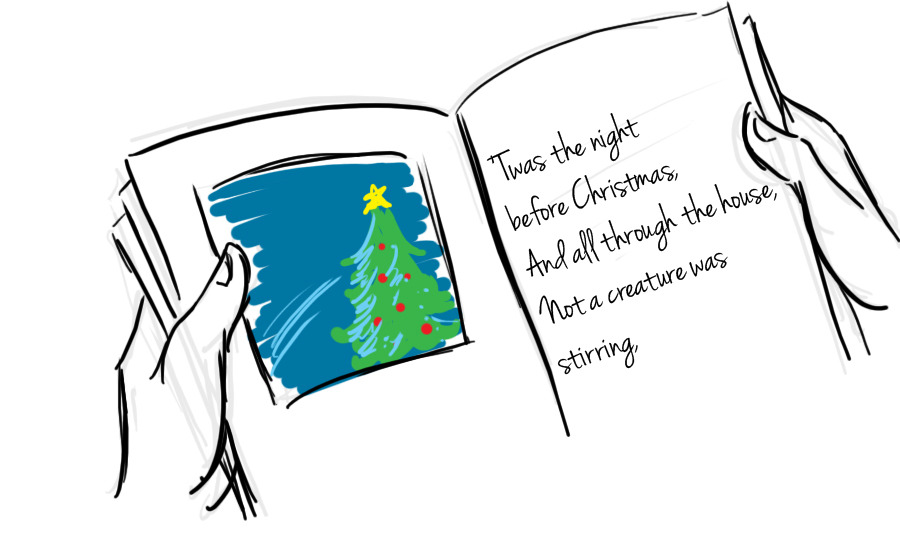 'Twas the night
before Christmas,
And all through the house,
Not a creature was
stirring,